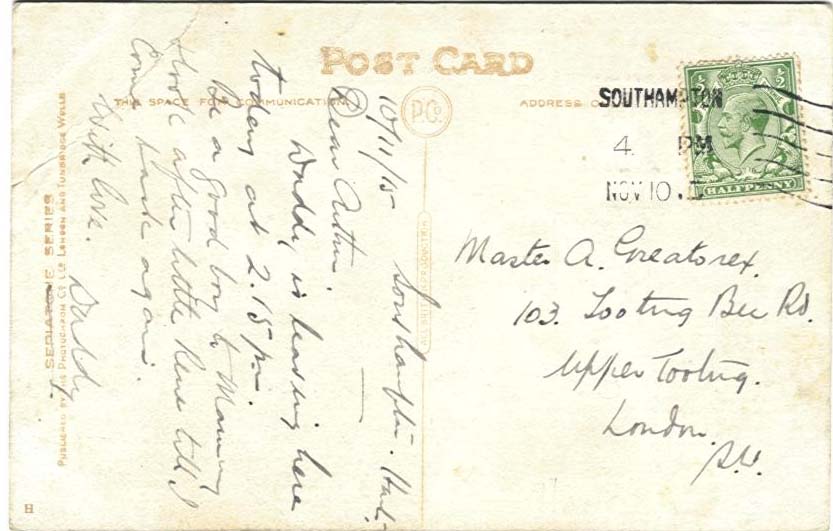 POST CARD
THIS SPACE FOR COMMUNICATION
ADDRESS
P.Co.
SOUTHAMPTON
4. PM
NOV 10
HALFPENNY
10/11/15 Southampton. Hants.
Dear Arthur.
Daddy is leaving here
today at 2.15 pm.
be a good boy to Mammy
& look after little Rene till I
come back again.
With love. Daddy
Master A. Greatorex.
103. Tooting Bec Rd.
Upper Tooting.
London.
S.W.
SEPIATONE SERIES
PUBLISHED BY THE PHOTOCHROM CO LTD LONDON AND TUNBRIDGE WELLS
ALL BRITISH PRODUCTION
H